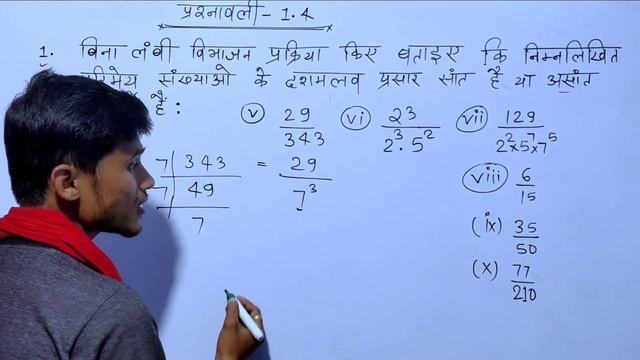 प्रश्नावली - 1.4
1. बिना लंबी विभाजन प्रक्रिया किए बताइए कि निम्नलिखित
संख्याओ के दशमलव प्रसार सांत है या असांत
है :
(v) 29/343 (vi) 23/2³·5² (vii) 129/2²×5⁷×7⁵
7 | 343 = 29/7³
7 | 49
7
(viii) 6/15
(ix) 35/50
(x) 77/210